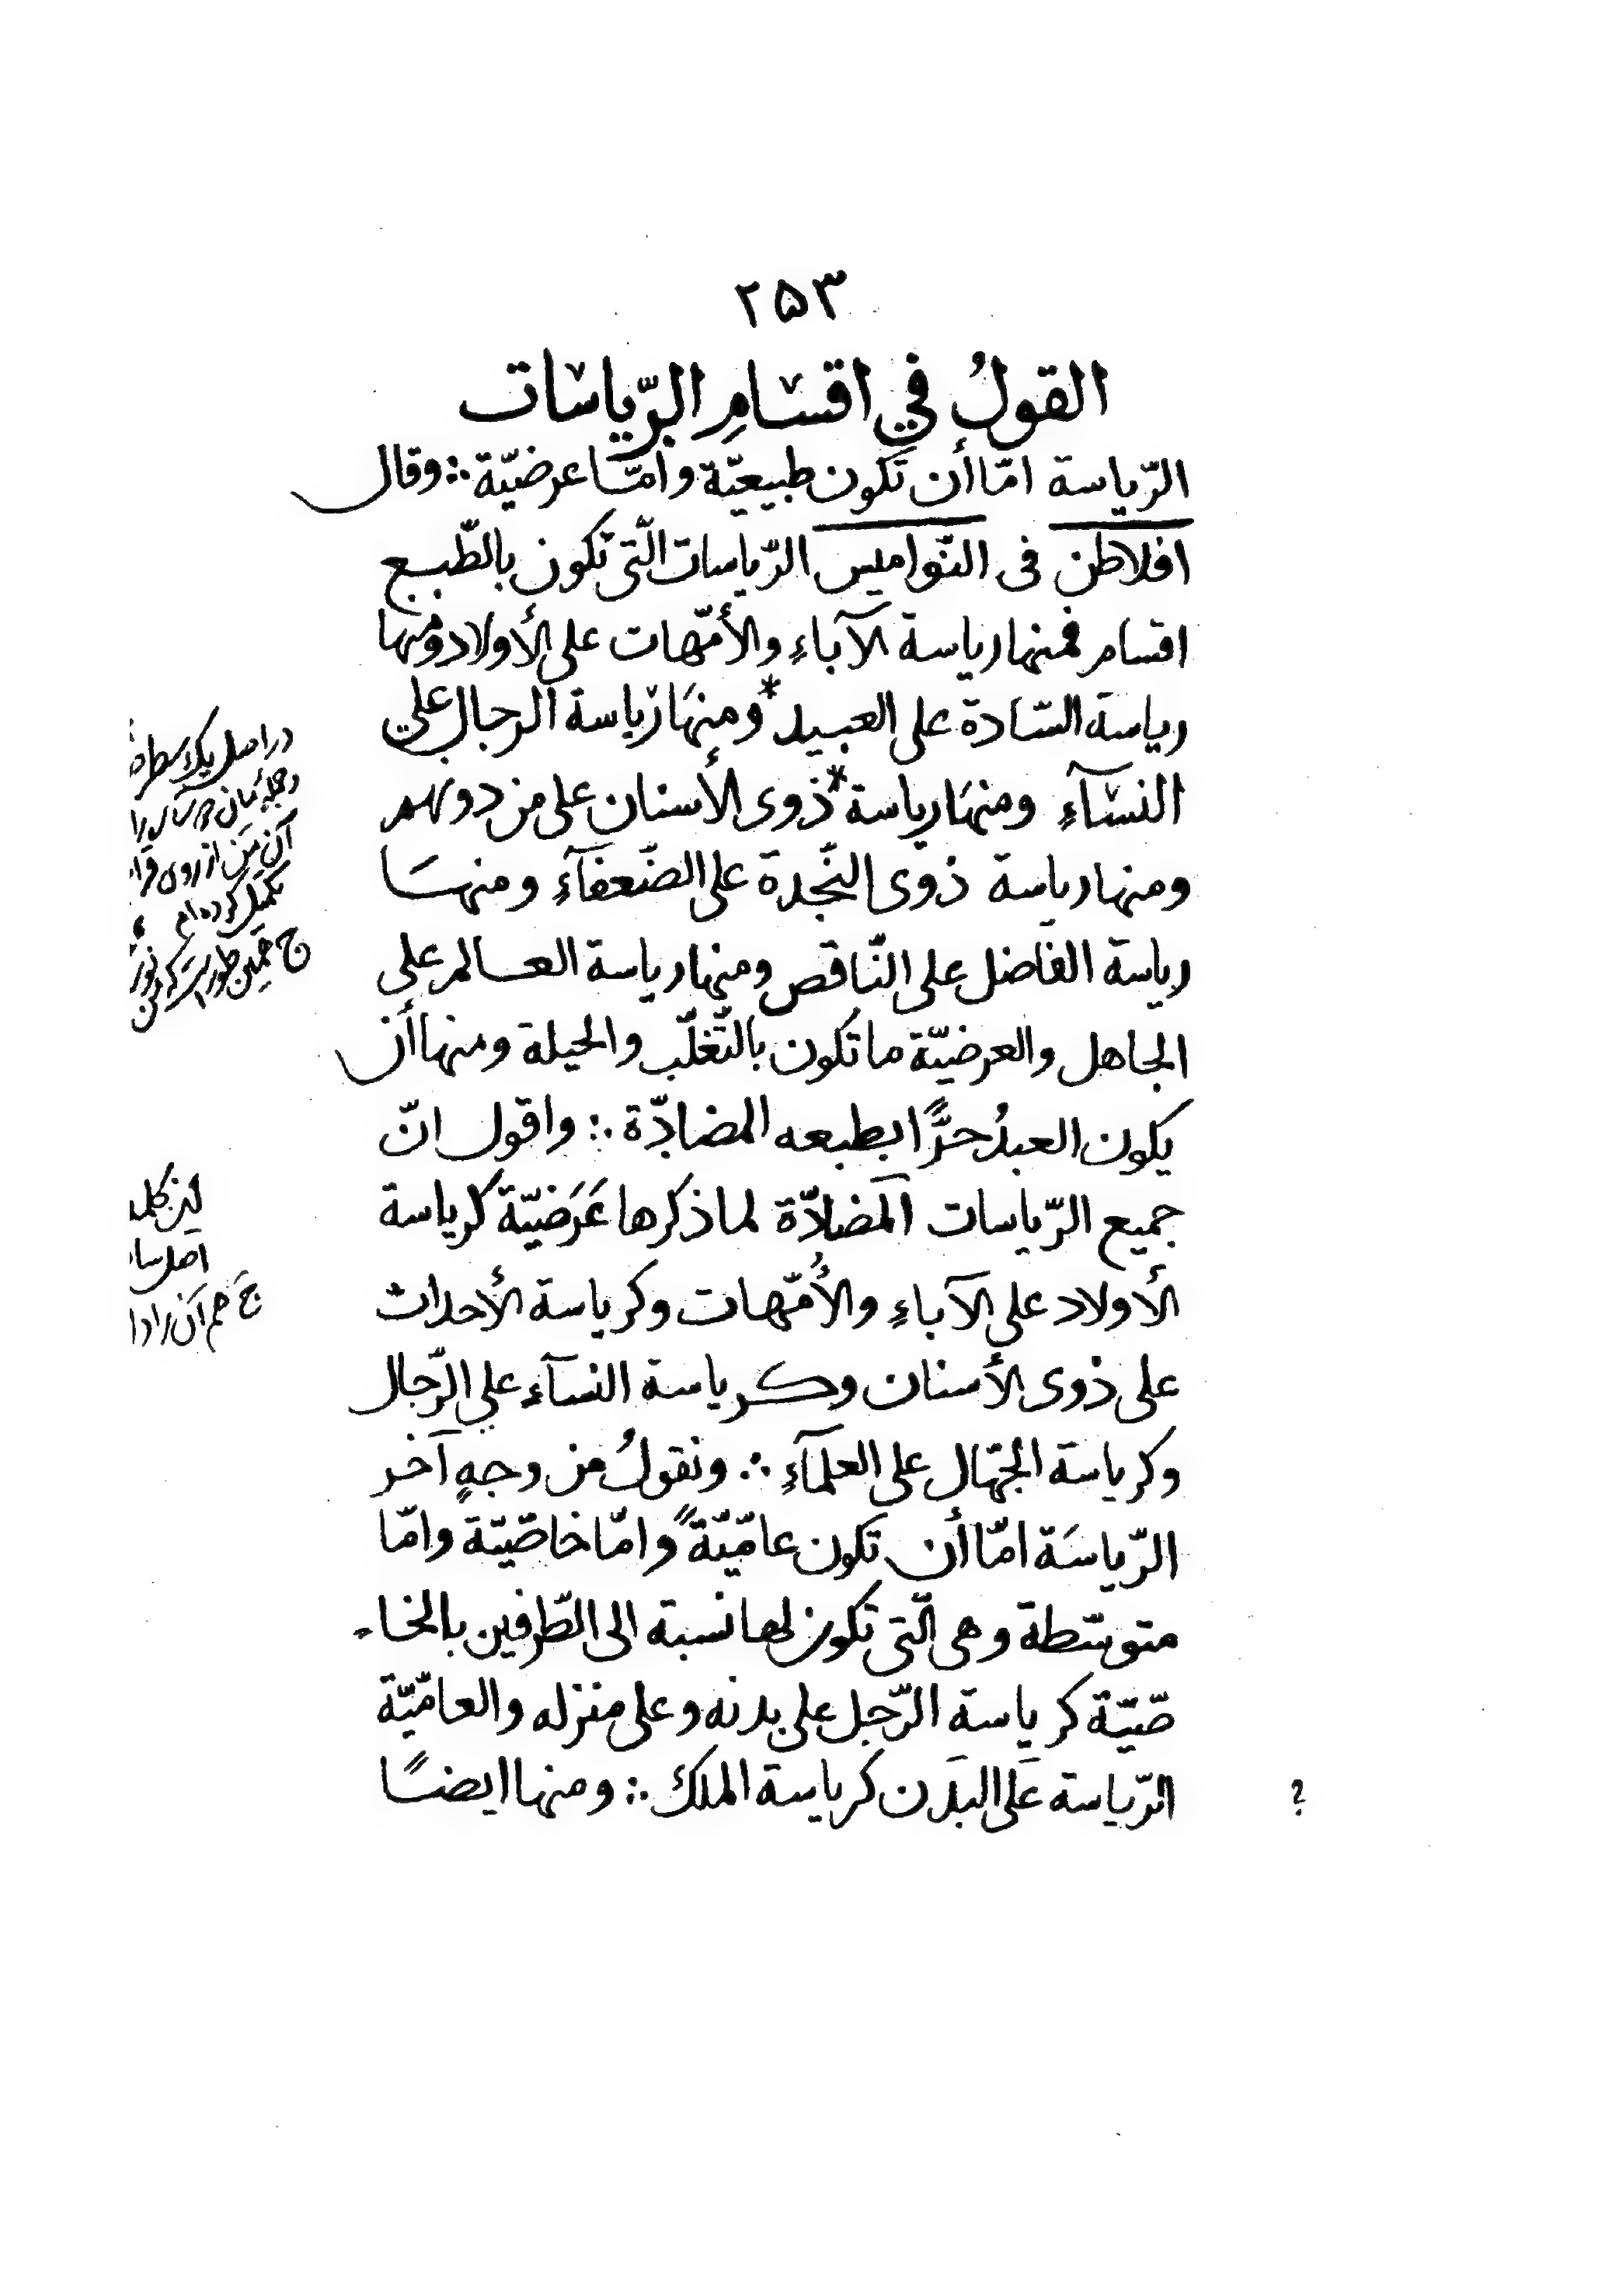 ۲۵۳
القولُ في اقسامِ الرّياسات
الرّياسة امّا أن تكون طبيعيّة وامّا عرضيّة ∴ وقال
افلاطن فى النّواميس الرّياسات الّتى تكون بالطّبع
اقسام فمنها رياسة الآباءِ والأمّهات على الأولاد ومنها
رياسة السّادة على العبيد * ومنهَا رياسة الرجال علي
النسآءِ ومنهَا رياسة * ذوى الأسنان على من دونهم
ومنها رياسة ذوى النّجدة على الضّعفآءِ ومنهَا
رياسة الفاضل على النّاقص ومنها رياسة العالم على
الجاهل والعرضيّة ما تكون بالتّغلّب والحيلة ومنها أن
يكون العبدُ حرًّا بطبعه المضادّة ∴ واقول انّ
جميع الرّياسات المضادّة لما ذكرها عَرَضيّة كرياسة
الأولاد على الآباءِ والأُمّهات وكرياسة الأحداث
على ذوى الأسنان وكرياسة النسآءِ على الرّجال
وكرياسة الجهّال على العلمآءِ ∴ ونقولُ من وجهٍ آخر
الرّياسَة امّا أن تكون عامّيّةً وامّا خاصّيّة وامّا
متوسّطة وهى الّتى تكون لها نسبة الى الطّرفين بالخا-
صّيّة كرياسة الرّجل على بدنه وعلى منزله والعامّيّة
الرّياسة عَلى البدَن كرياسة الملك ∴ ومنها ايضًا
؟
در اصل يك سطر
آن متن از روى
تكميل كرده‌ام
ج همين طور است
اين كلمه
اصل
ج هم آن را